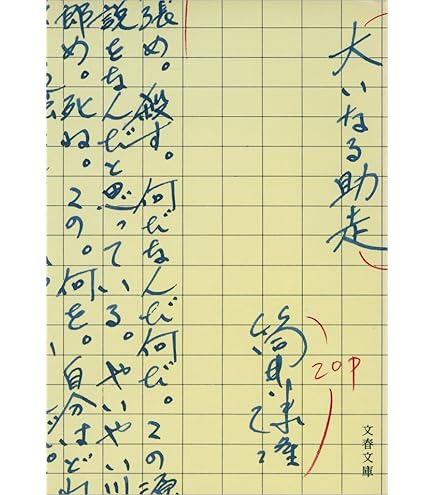 大いなる助走
筒井康隆
20P
文春文庫
張め。殺す。何がなんだ何だ。この源
説をなんだと思っている。やいやい川
郎め。死ね。この。何を。自分はど